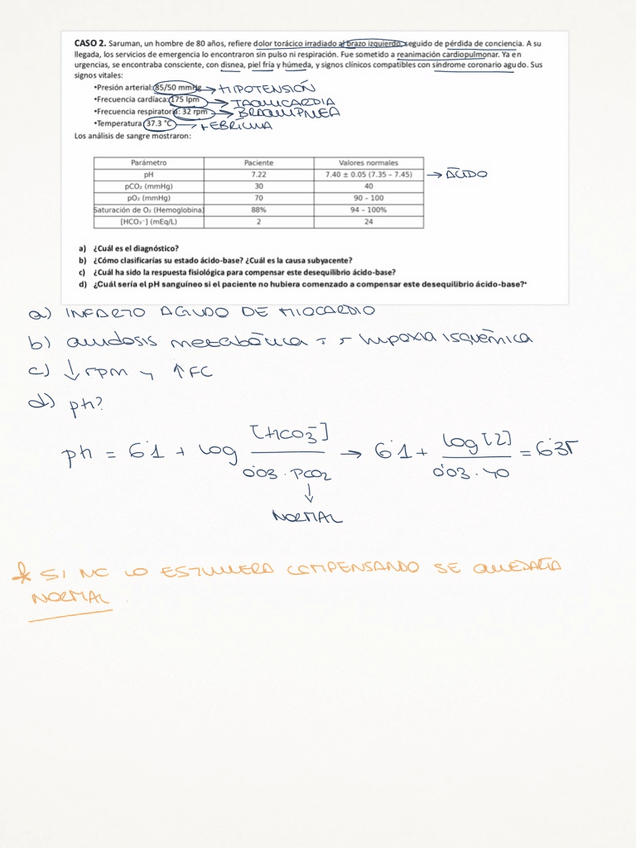 CASO 2. Saruman, un hombre de 80 años, refiere dolor torácico irradiado al brazo izquierdo, seguido de pérdida de conciencia. A su
llegada, los servicios de emergencia lo encontraron sin pulso ni respiración. Fue sometido a reanimación cardiopulmonar. Ya en
urgencias, se encontraba consciente, con disnea, piel fría y húmeda, y signos clínicos compatibles con síndrome coronario agudo. Sus
signos vitales:
•Presión arterial: 85/50 mmHg → HIPOTENSIÓN
•Frecuencia cardíaca: 175 lpm → TAQUICARDIA
•Frecuencia respiratoria: 32 rpm →
•Temperatura: 37.3 °C →
Los análisis de sangre mostraron:
Parámetro Paciente Valores normales
pH 7.22 7.40 ± 0.05 (7.35 – 7.45) → ÁCIDO
pCO₂ (mmHg) 30 40
pO₂ (mmHg) 70 90 - 100
Saturación de O₂ (Hemoglobina) 88% 94 - 100%
[HCO₃⁻] (mEq/L) 2 24
a) ¿Cuál es el diagnóstico?
b) ¿Cómo clasificarías su estado ácido-base? ¿Cuál es la causa subyacente?
c) ¿Cuál ha sido la respuesta fisiológica para compensar este desequilibrio ácido-base?
d) ¿Cuál sería el pH sanguíneo si el paciente no hubiera comenzado a compensar este desequilibrio ácido-base?*
a) INFARTO AGUDO DE MIOCARDIO
b) acidosis metabólica → → hipoxia isquémica
c) ↓ rpm y ↑ FC
d) ph?
ph = 6'1 + log [HCO3⁻] / 0'03 · PCO2 → 6'1 + log [2] / 0'03 · 40 = 6'35
↓
NORMAL
* SI NO LO ESTUVIERA COMPENSANDO SE QUEDARÍA
NORMAL